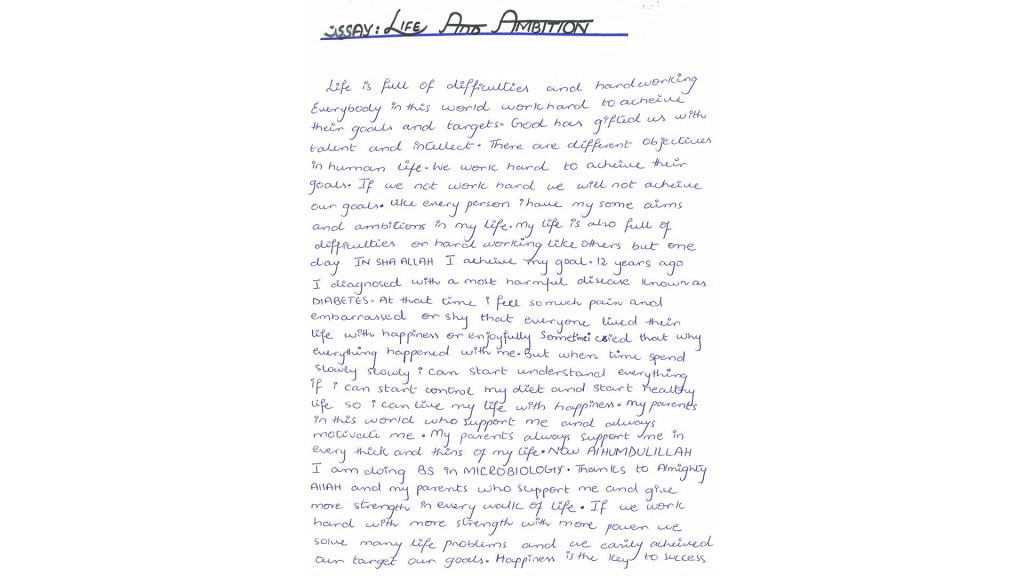 ESSAY: LIFE AND AMBITION
Life is full of difficulties and handworking
Everybody in this world work hard to acheive
their goals and targets. God has gifted us with
talent and intellect. There are different objectives
in human life. We work hard to acheive their
goals. If we not work hard we will not acheive
our goals. Like every person i have my some aims
and ambitions in my life. My life is also full of
difficulties or hard working like others but one
day IN SHA ALLAH I acheive my goal. 12 years ago
I diagnosed with a most harmful disease known as
DIABETES. At that time i feel so much pain and
embarrassed or shy that everyone lived their
life with happiness or enjoyfully Sometimes cried that why
everything happened with me. But when time spend
slowly slowly i can start understand everything
if i can start control my diet and start healthy
life so i can live my life with happiness. My parents
in this world who support me and always
motivate me. My parents always support me in
every thick and thins of my life. Now AlHUMDULILLAH
I am doing BS in MICROBIOLOGY. Thanks to Almighty
Allah and my parents who support me and give
more strength in every walk of life. If we work
hard with more strength with more power we
solve many life problems and we easily acheived
our target our goals. Happiness is the key to success